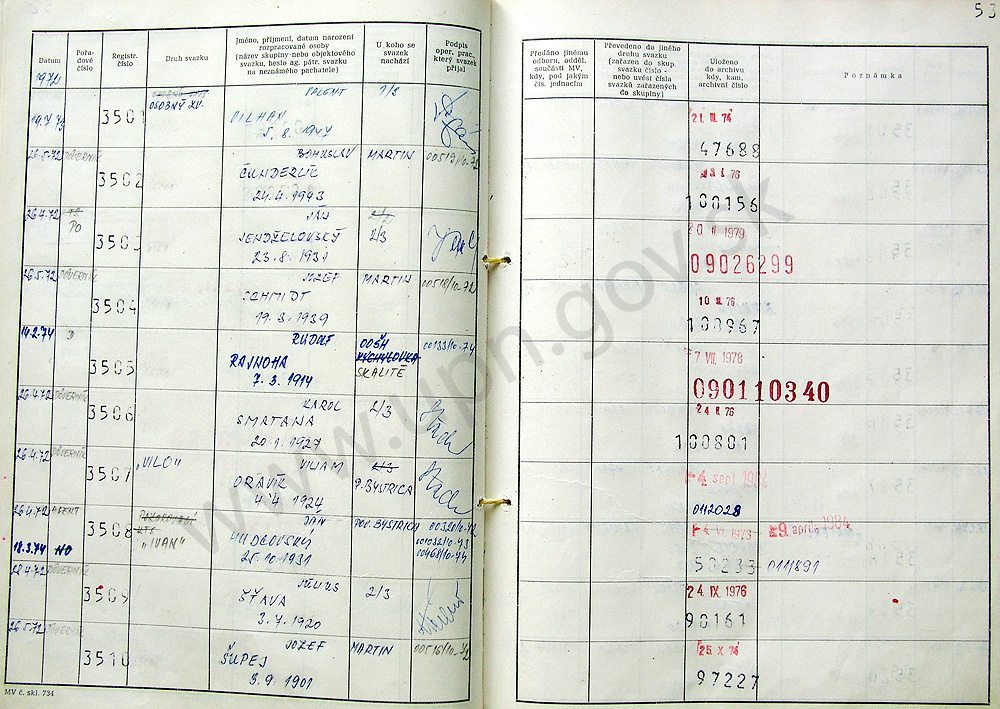 53
Datum
Pořa-
dové
číslo
Registr.
číslo
Druh svazku
Jméno, příjmení, datum narození
rozpracované osoby
(název skupiny-nebo objektového
svazku, heslo ag. pátr. svazku
na neznámého pachatele)
U koho se
svazek
nachází
Podpis
oper. prac.,
který svazek
přijal
Předáno jinému
odboru, odděl.
součásti MV,
kdy, pod jakým
čís. jednacím
Převedeno do jiného
druhu svazku
(zařazen do skup.
svazku číslo -
nebo uvést čísla
svazků zařazených
do skupiny)
Uloženo
do archivu
kdy, kam,
archivní číslo
Poznámka
1972
3501
OSOBNÝ ZV.
5. 8. 1947
21. III. 74
47688
26.5.72 DÔVERNÍK
3502
BOHUSLAV
ČUNDERLÍK
24. 4. 1943
MARTIN
00519/10-72
76
100156
26.4.72
PO
3503
JÁN
JENDŽELOVSKÝ
23. 8. 1931
2/3
1979
09026299
26.5.72 DÔVERNÍK
3504
JOZEF
SCHMIDT
19. 3. 1939
MARTIN
00518/10-72
76
100967
14.2.74
D
3505
RUDOLF
RAJNOHA
7. 3. 1914
OOŠH
SKALITÉ
00133/10-74
7 VII. 1978
090110340
26.4.72 DÔVERNÍK
3506
KAROL
SMATANA
20. 1. 1927
2/3
76
100801
26.4.72 DÔVERNÍK
3507
"VILO"
VILIAM
ORAVÍC
4. 4. 1924
P. BYSTRICA
4. sept. 1984
0112028
26.4.72 AGENT
18.3.74 NO
3508
"IVAN"
JÁN
HUDCOVSKÝ
25. 10. 1931
POV. BYSTRICA
00320/10-72
00132/10-73
00468/10-74
4. VI 1973
9. apríla 1984
50233
0111891
28.4.72 DÔVERNÍK
3509
JÚLIUS
ŠŤAVA
3. 4. 1920
2/3
24. IX. 1976
90161
26.5.72 DÔVERNÍK
3510
JOZEF
ŠUPEJ
3. 9. 1901
MARTIN
00516/10-72
25. X 74
97227
MV č. skl. 734
www.upn.gov.sk